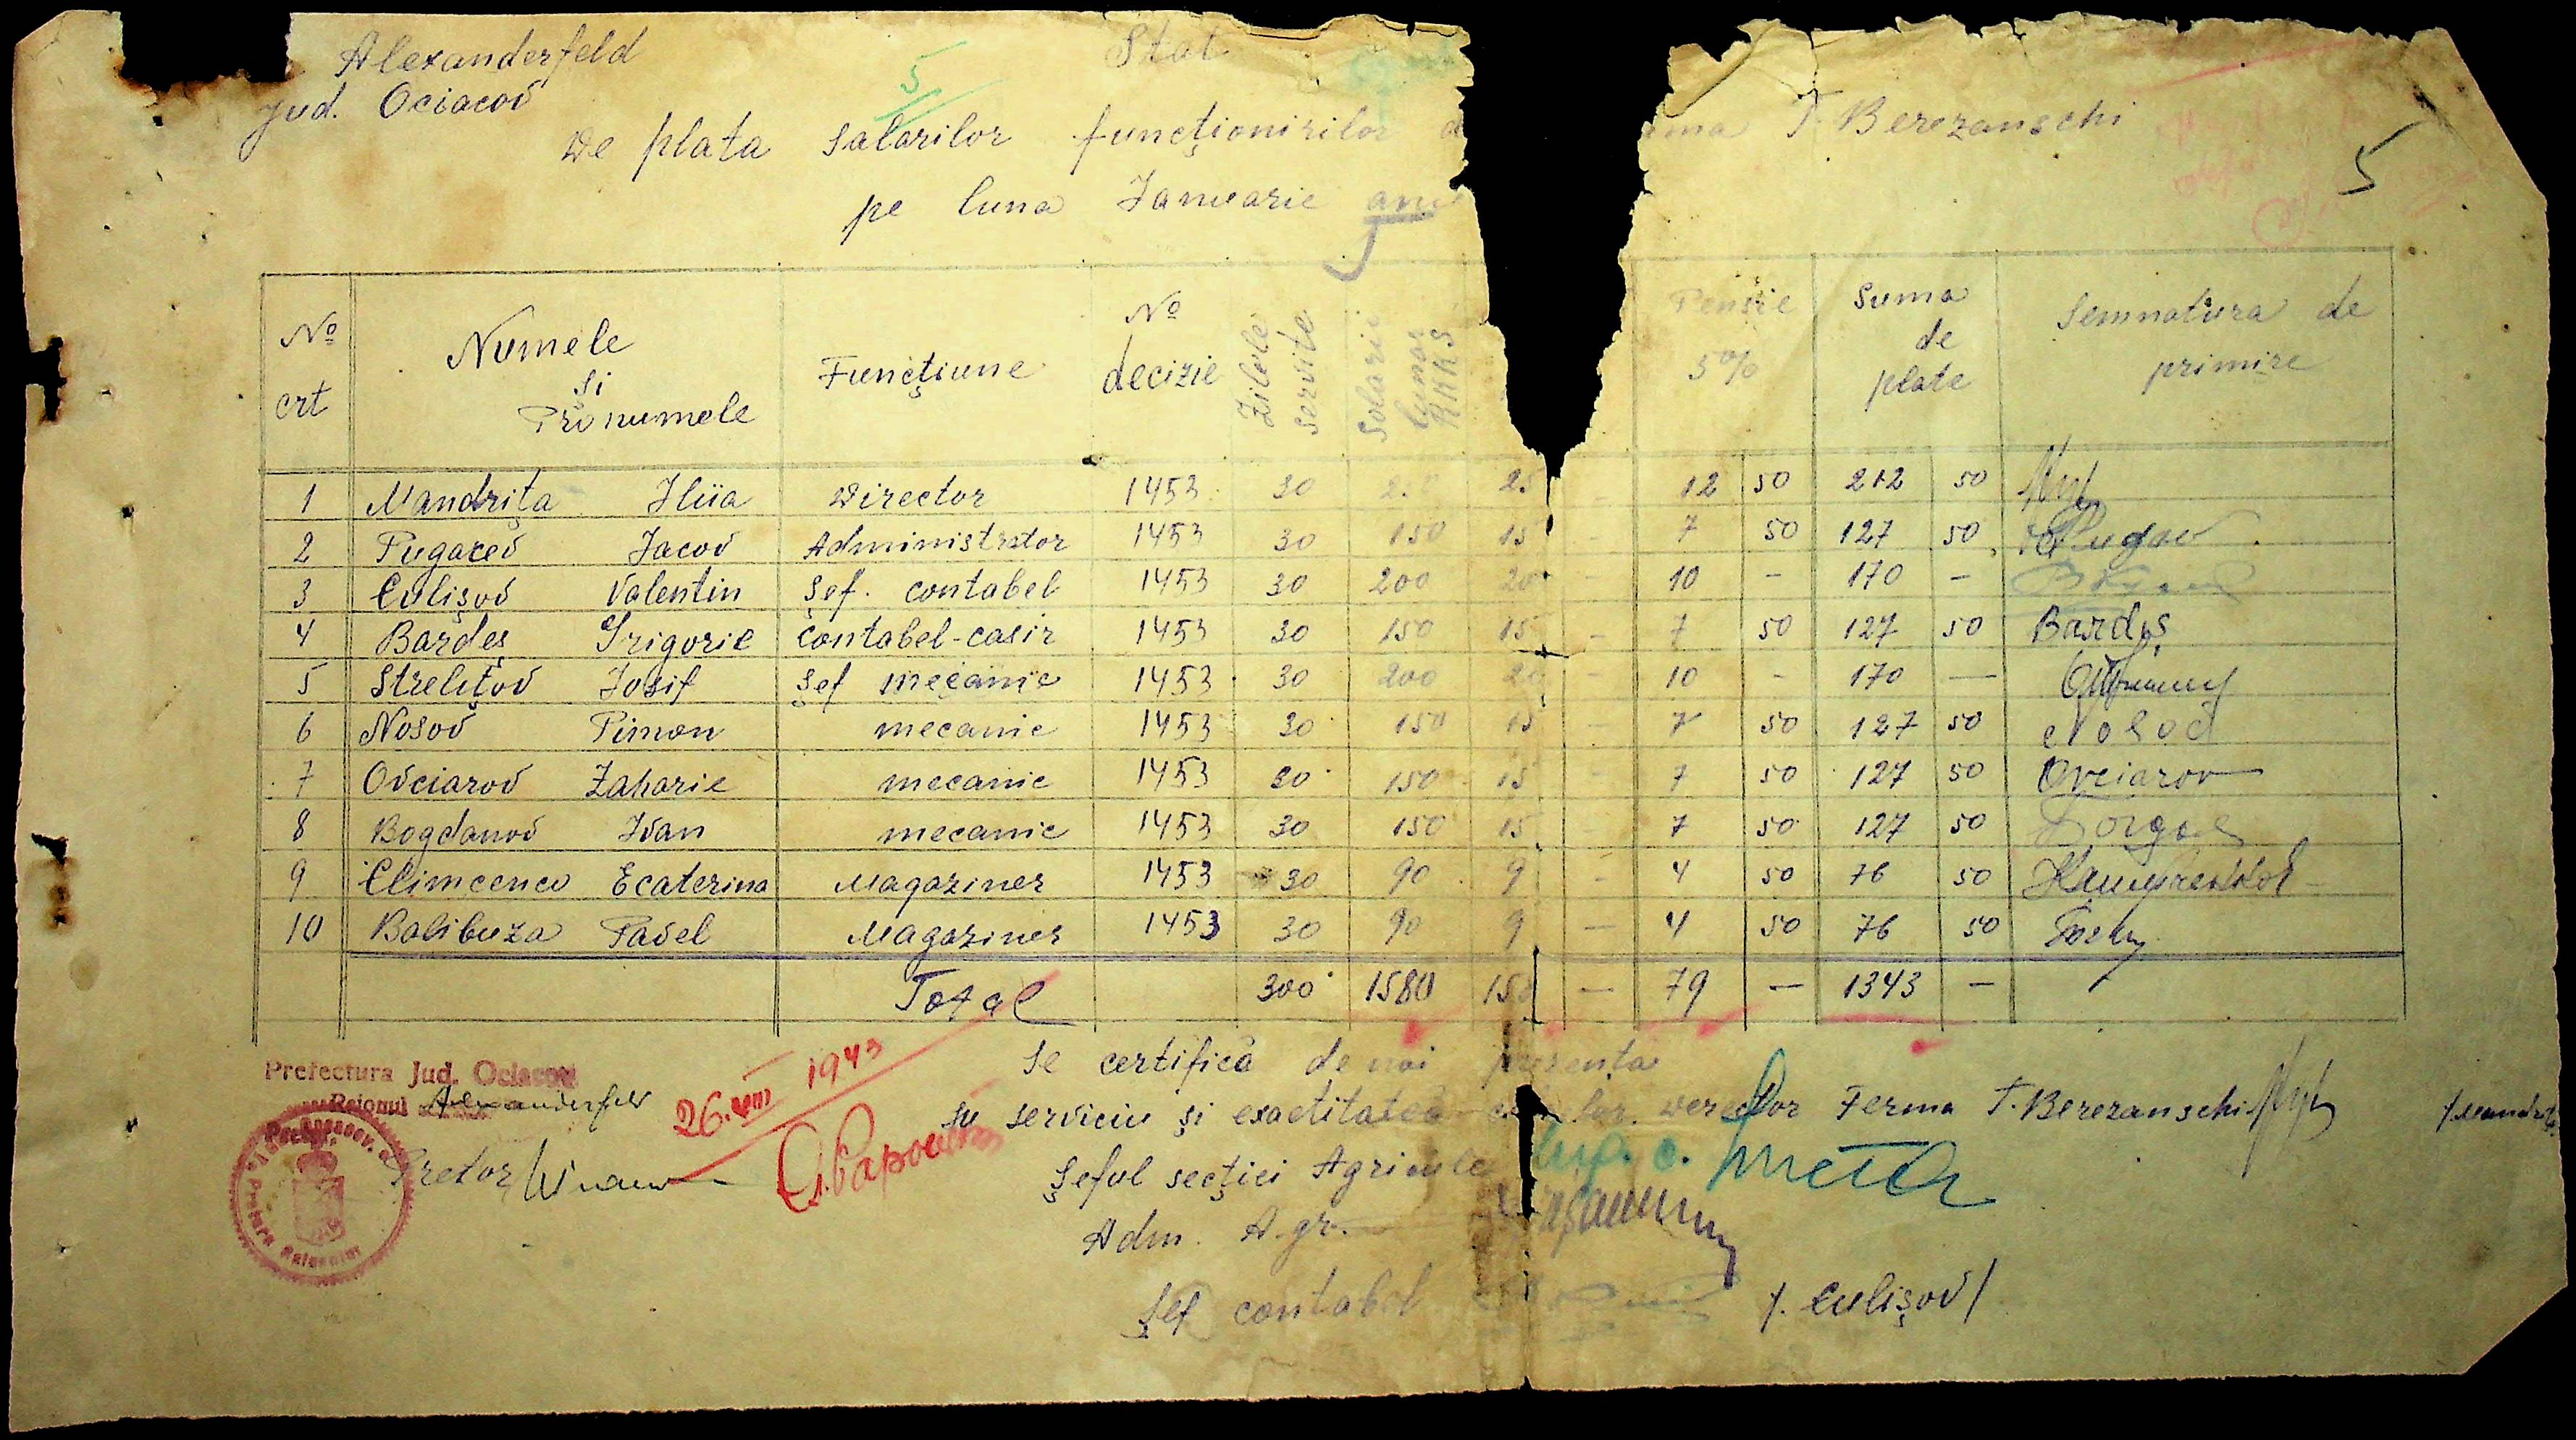 Alexanderfeld
Jud. Ociacov
Stat
5
De plata salarilor funcţionirilor T. Berezanschi
5
pe luna Januarie
No crt | Numele şi Pronumele | Funcţiune | No decizie | Zilele servite | Solarie lunar RKKS | Pensie 5% | Suma de plate | Semnatura de primire
1 Mandriţa Iliia Director 1453 30 25 12 50 212 50
2 Pugacev Jacov Administrator 1453 30 150 15 - 7 50 127 50
3 Culişov Valentin Şef. contabel 1453 30 200 20 - 10 - 170 -
4 Bardeş Grigorie Contabel-casir 1453 30 150 15 - 7 50 127 50 Bardeş
5 Streliţov Josif Şef mecanic 1453 30 200 20 - 10 - 170 -
6 Nosov Pimon mecanic 1453 30 150 15 - 7 50 127 50 Nosov
7 Ovciarov Zaharie mecanic 1453 30 150 15 - 7 50 127 50 Ovciarov
8 Bogdanov Ivan mecanic 1453 30 150 15 7 50 127 50
9 Climcenco Ecaterina Magaziner 1453 30 90 9 - 4 50 76 50
10 Balibuza Pavel Magaziner 1453 30 90 9 - 4 50 76 50
Total 300 1580 15 - 79 - 1343 -
Prefectura Jud. Ociacov
Raionul Alexanderfeld
Pretor
26.VIII 1943
Se certifică de noi prezenta
su serviciu şi exactitatea Derector Ferma T. Berezanschi
Şeful secţiei Agricole
Adm. Agr.
Şef contabel /. Culişov/